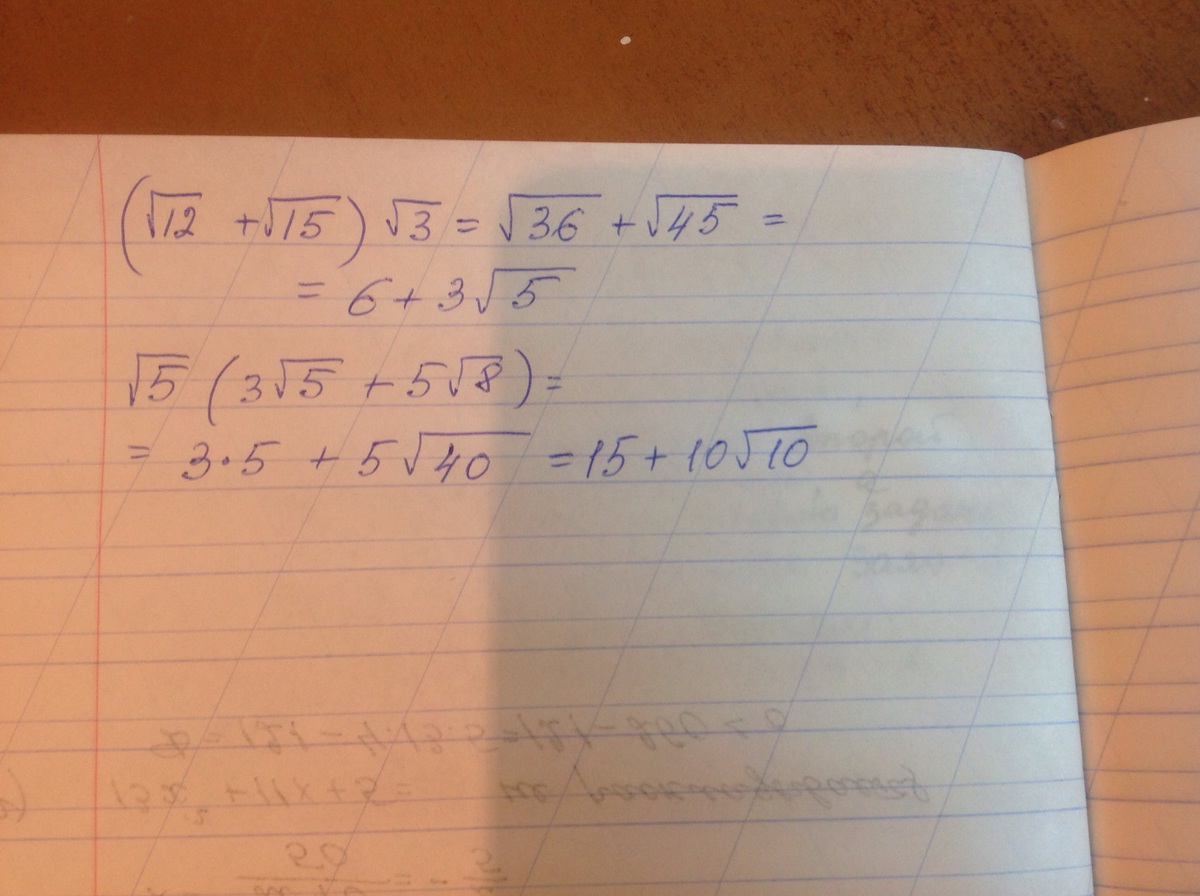 (√12 + √15) √3 = √36 + √45 =
= 6 + 3√5
√5 (3√5 + 5√8) =
= 3·5 + 5√40 = 15 + 10√10